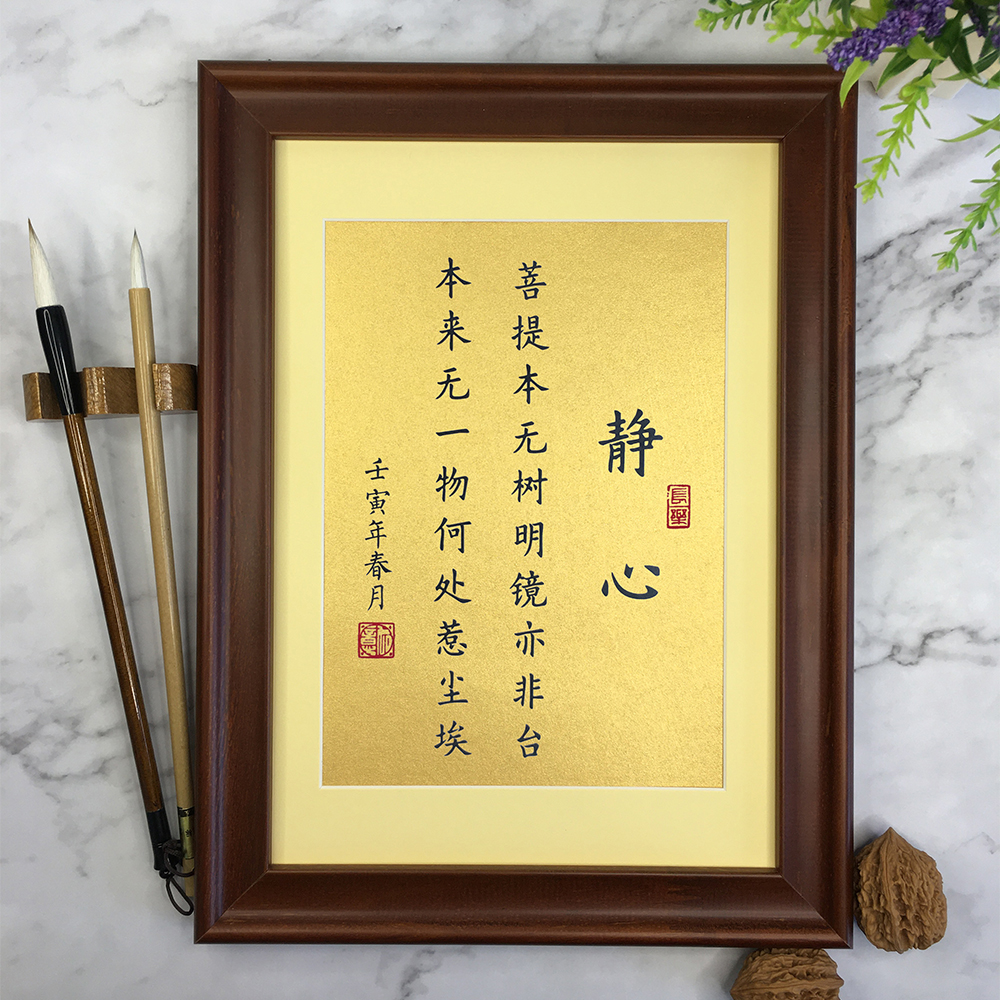 静心
長樂
菩提本无树明镜亦非台
本来无一物何处惹尘埃
壬寅年春月